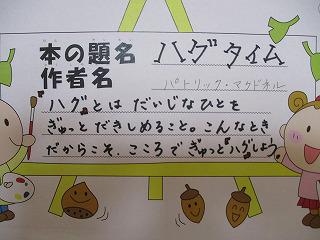 本の題名 ハグタイム
作者名 パトリック・マクドネル
"ハグ"とは だいじなひとを
ぎゅっと だきしめること。こんなとき
だからこそ、こころで ぎゅっと"ハグしよう。